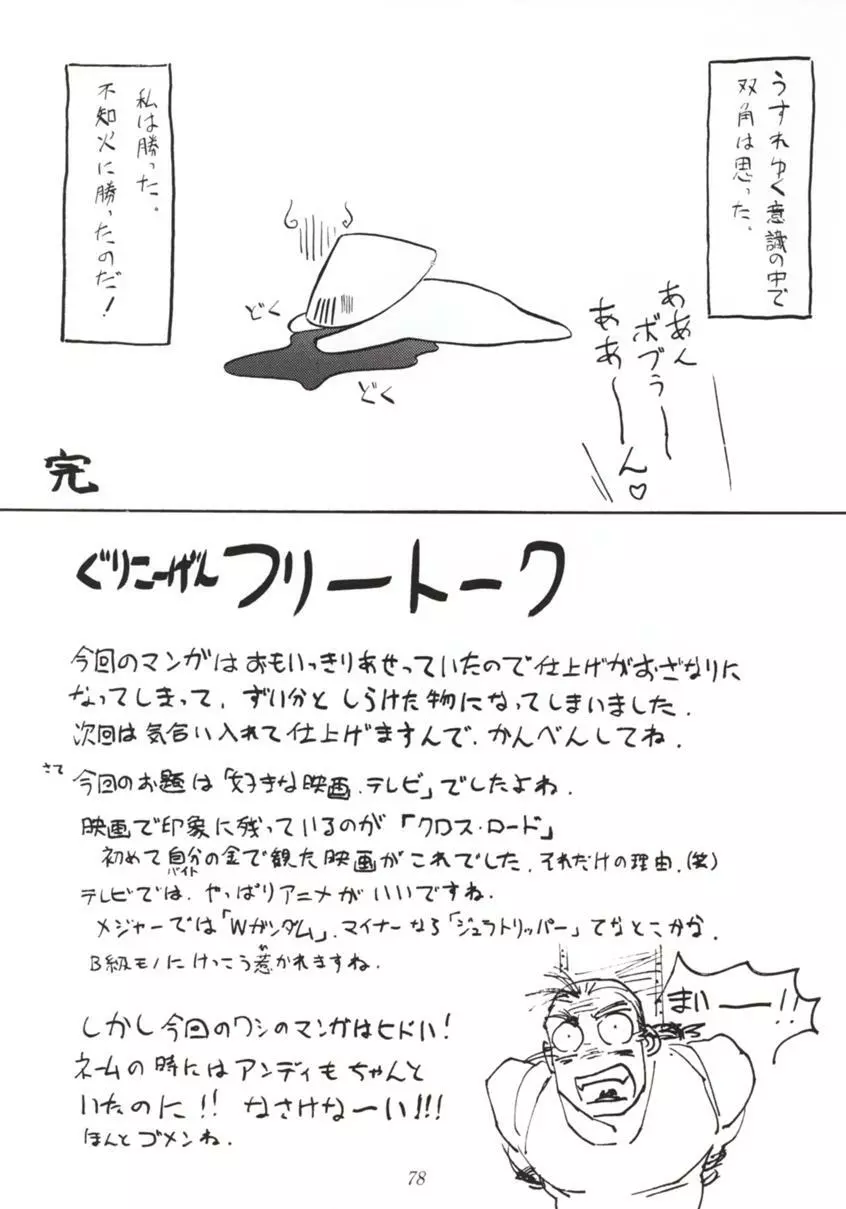 うすれゆく意識の中で
双角は思った。
ああん
ボブぅー
ああ〜〜ん♡
私は勝った。
不知火に勝ったのだ！
どく
どく
完
ぐりこーげんフリートーク
今回のマンガはおもいっきりあせっていたので仕上げがおざなりに
なってしまって、ずい分としらけた物になってしまいました.
次回は気合い入れて仕上げますんで、かんべんしてね.
さて
今回のお題は「好きな映画、テレビ」でしたよね.
映画で印象に残っているのが「クロス・ロード」
初めて自分の金で観た映画がこれでした.それだけの理由.(笑)
バイト
テレビでは、やっぱりアニメがいいですね.
メジャーでは「Wガンダム」、マイナーなら「ジュラトリッパー」てなとこかな.
B級モノにけっこう惹かれますね.
ひ
まいーー!!
しかし今回のワシのマンガはヒドい！
ネームの時にはアンディもちゃんと
いたのに!! なさけなーい!!!
ほんとゴメンね.
78